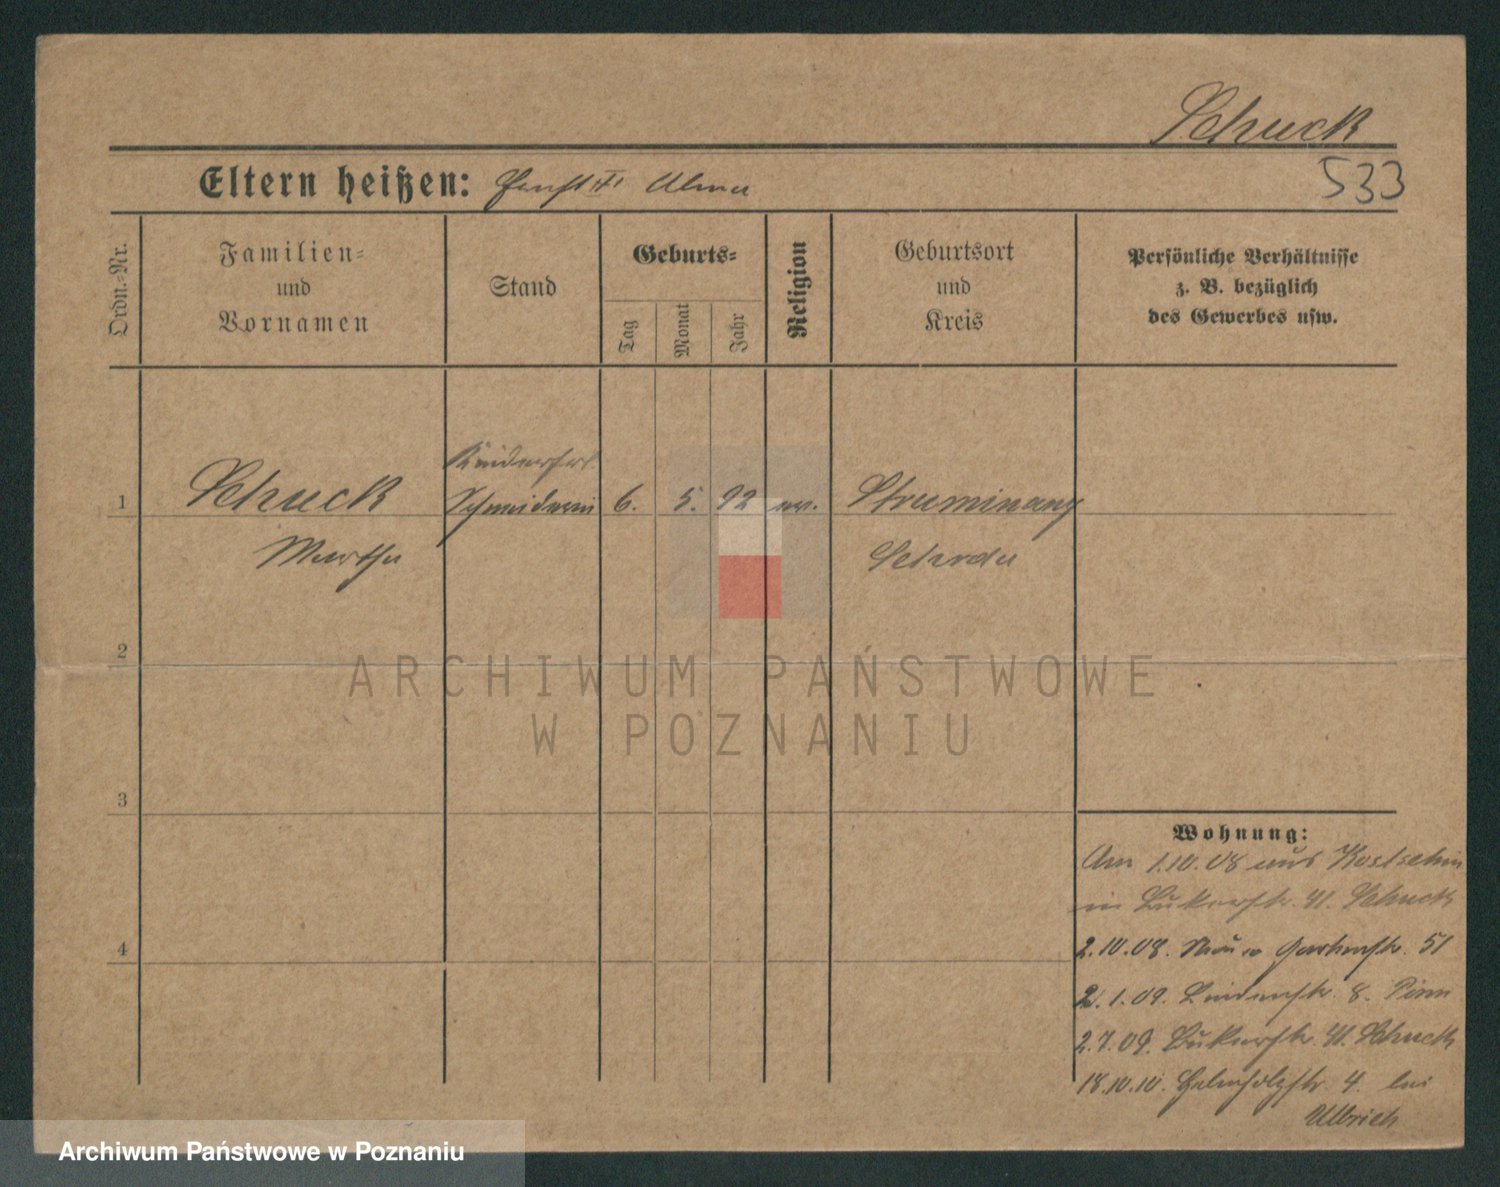 Schuck
Eltern heißen:
533
Ordn.-Nr.
Familien-
und
Vornamen
Stand
Geburts-
Tag
Monat
Jahr
Religion
Geburtsort
und
Kreis
Persönliche Verhältnisse
z. B. bezüglich
des Gewerbes usw.
1
Schuck
Martha
Kinderfrl.
Schneiderin
6.
5.
92
ev.
Struminany
Schroda
2
3
4
Wohnung:
Am 1.10.08 aus Kostschin
in Bukerstr. 41. Schuck
2.10.08. Gartenstr. 51
2.1.09. Lindenstr. 8. Pinn
2.7.09. Bukerstr. 41. Schuck
18.10.10. Helmholzstr. 4. bei
Ulbrich
ARCHIWUM PAŃSTWOWE
W POZNANIU
Archiwum Państwowe w Poznaniu